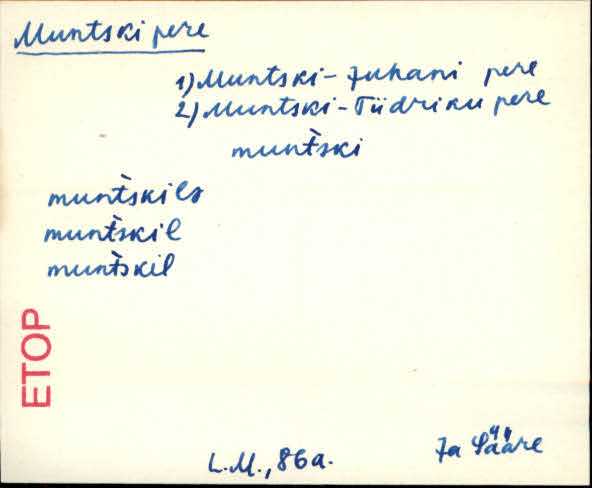 Muntski pere
1) Muntski-Juhani pere
2) Muntski-Tiidriku pere
munt̀ski
munt̀skile
munt̀skil
munt̀skil
ETOP
L.M., 86a.
Ja Sääre